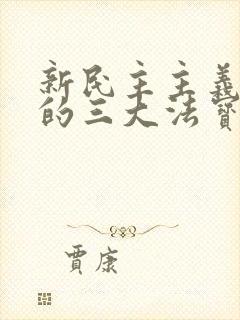 新民主主義
的三大法寶
賈康